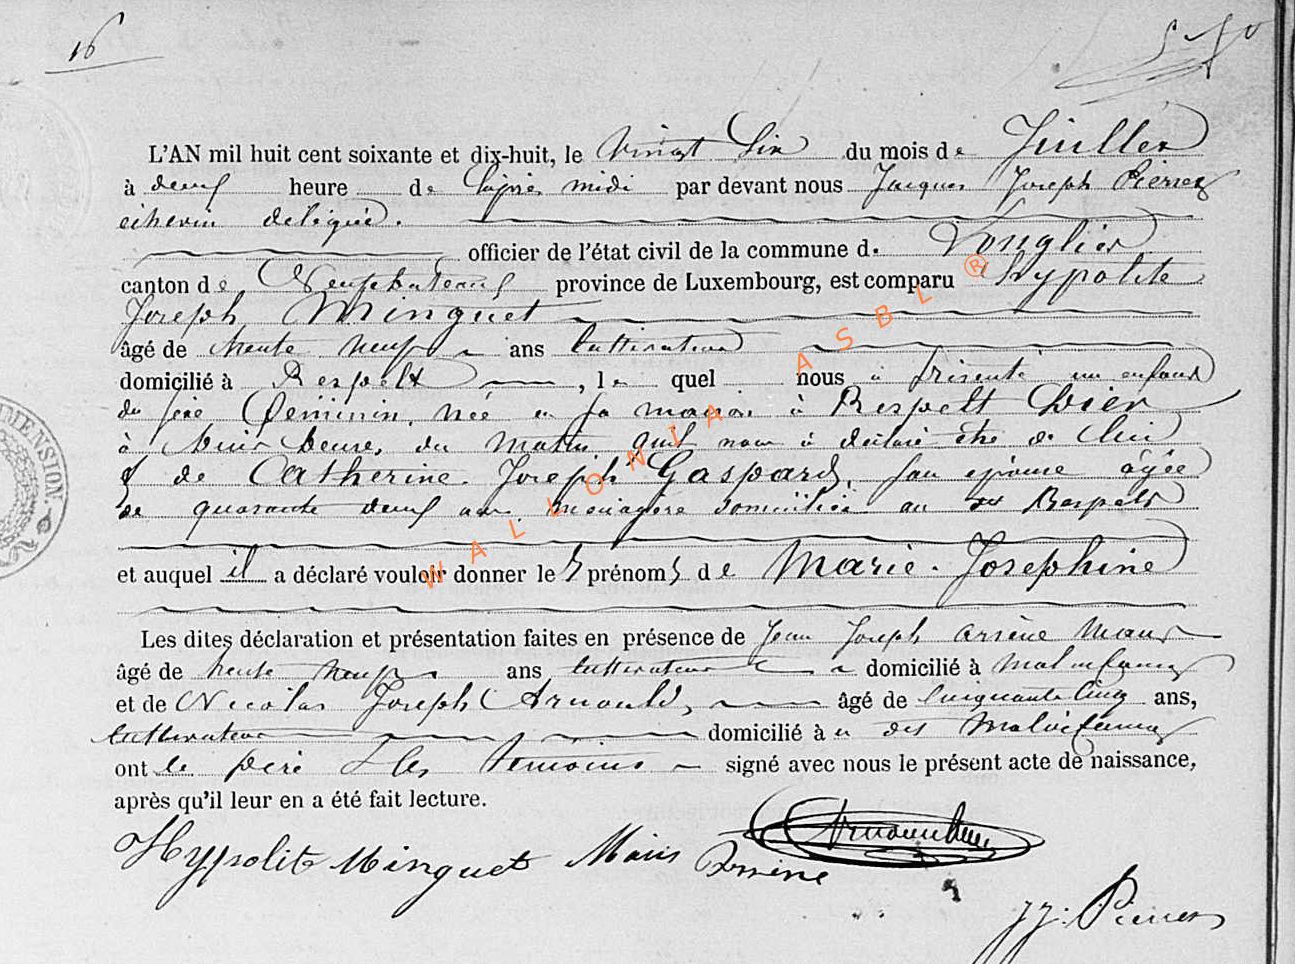 16
L'AN mil huit cent soixante et dix-huit, le Vingt Six du mois de Juillet
à deux heure de l'après midi par devant nous Jacques Joseph Pierret
échevin délégué.
officier de l'état civil de la commune d. Longlier
canton de Neufchateau province de Luxembourg, est comparu Hypolite
Joseph Minguet
âgé de trente neuf ans cultivateur
domicilié à Respelt, le quel nous a présenté un enfant
du sexe féminin, née en sa maison à Respelt hier
à huit heure, du matin, qu'il nous a déclaré être de lui
& de Catherine Joseph Gaspard, son épouse âgée
de quarante deux ans ménagère domiciliée au dit Respelt
et auquel il a déclaré vouloir donner les prénoms de Marie Josephine
Les dites déclaration et présentation faites en présence de Jean Joseph Arsène Maus
âgé de trente neuf ans cultivateur domicilié à Molinfaing
et de Nicolas Joseph Arnould, âgé de Cinquante Cinq ans,
cultivateur domicilié à au dit Molinfaing
ont le père & les témoins signé avec nous le présent acte de naissance,
après qu'il leur en a été fait lecture.
Hyppolite Minguet Maus
J.J. Pierret
DIMENSION
WALLONIA ASBL ®